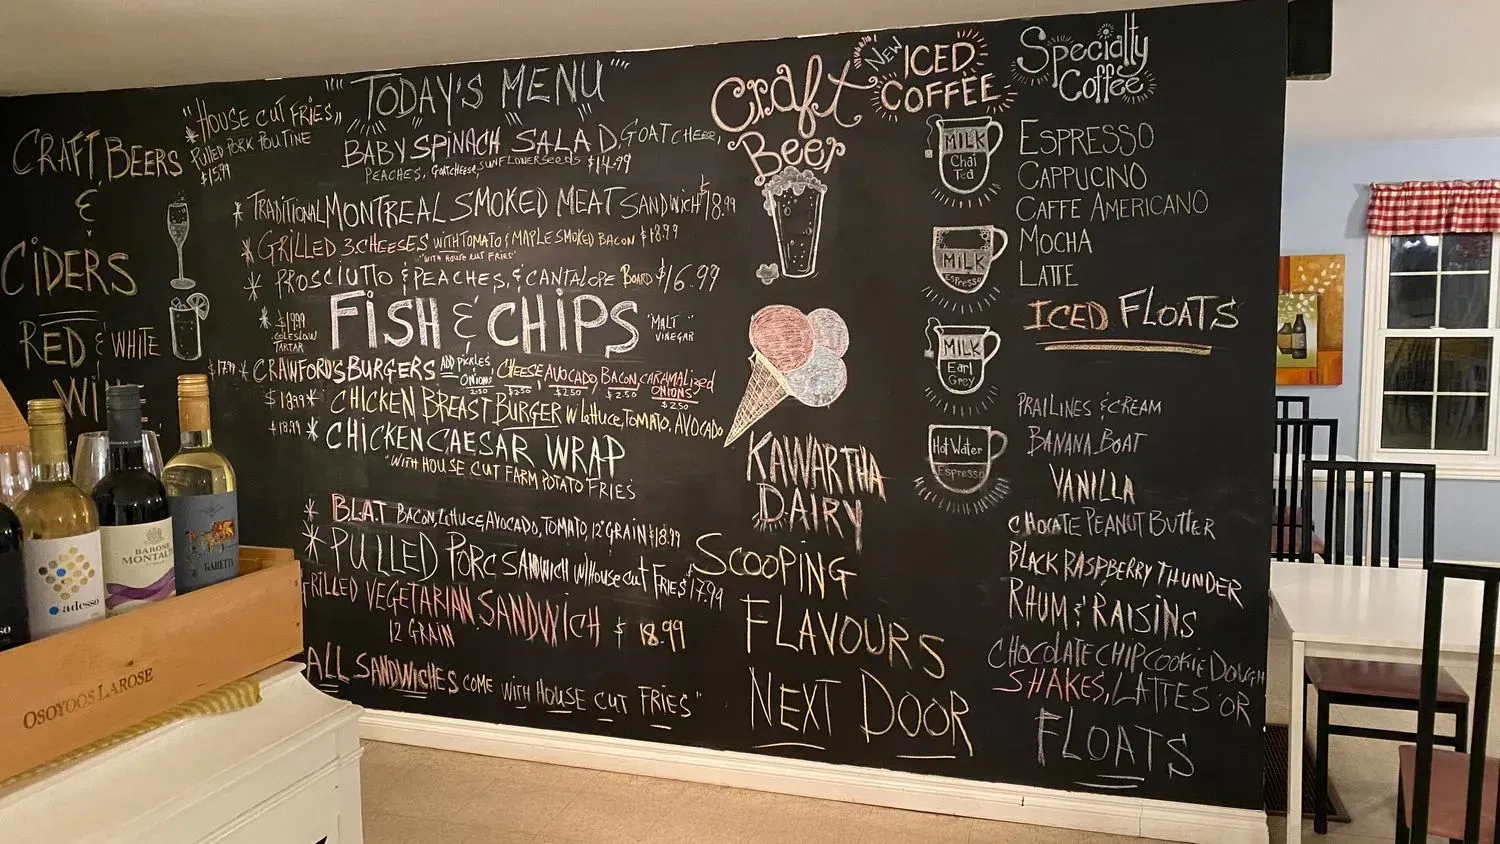 CRAFT BEERS
&
CIDERS
RED & WHITE
WI
"HOUSE CUT FRIES"
* PULLED PORK POUTINE
$15.99
"TODAY'S MENU"
BABY SPINACH SALAD, GOAT CHEESE,
PEACHES, GOATCHEESE, SUNFLOWER SEEDS $14.99
* TRADITIONAL MONTREAL SMOKED MEAT SANDWICH $18.99
* GRILLED 3 CHEESES WITH TOMATO & MAPLE SMOKED BACON $18.99
"WITH HOUSE CUT FRIES"
* PROSCIUTTO & PEACHES, & CANTALOPE BOARD $16.99
* $19.99
COLESLAW
TARTAR
FISH & CHIPS
"MALT"
VINEGAR
$17.99 * CRAWFORD'S BURGERS ADD PICKLES, ONIONS 2.50, CHEESE $2.50, AVOCADO, $2.50 BACON, $2.50 CARAMALIZED ONIONS $2.50
$18.99 * CHICKEN BREAST BURGER W LETTUCE, TOMATO, AVOCADO
$18.99 * CHICKEN CAESAR WRAP
"WITH HOUSE CUT FARM POTATO FRIES
* B.L.A.T BACON, LETTUCE AVOCADO, TOMATO, 12 GRAIN $18.99
* PULLED PORC SANDWICH W/HOUSE CUT FRIES $17.99
FRILLED VEGETARIAN SANDWICH $18.99
12 GRAIN
ALL SANDWICHES COME WITH HOUSE CUT FRIES"
Craft
Beer
KAWARTHA
DAIRY
SCOOPING
FLAVOURS
NEXT DOOR
NEW ICED
COFFEE
MILK
Chai
Tea
MILK
Espresso
MILK
Earl
Grey
Hot Water
Espresso
Specialty
Coffee
ESPRESSO
CAPPUCINO
CAFFE AMERICANO
MOCHA
LATTE
ICED FLOATS
PRAILINES & CREAM
BANANA BOAT
VANILLA
CHOCATE PEANUT BUTTER
BLACK RASPBERRY THUNDER
RHUM & RAISINS
CHOCOLATE CHIP COOKIE DOUGH
SHAKES, LATTES OR
FLOATS
adesso
BARONE
MONTALTO
GARETTO
OSOYOOS LAROSE